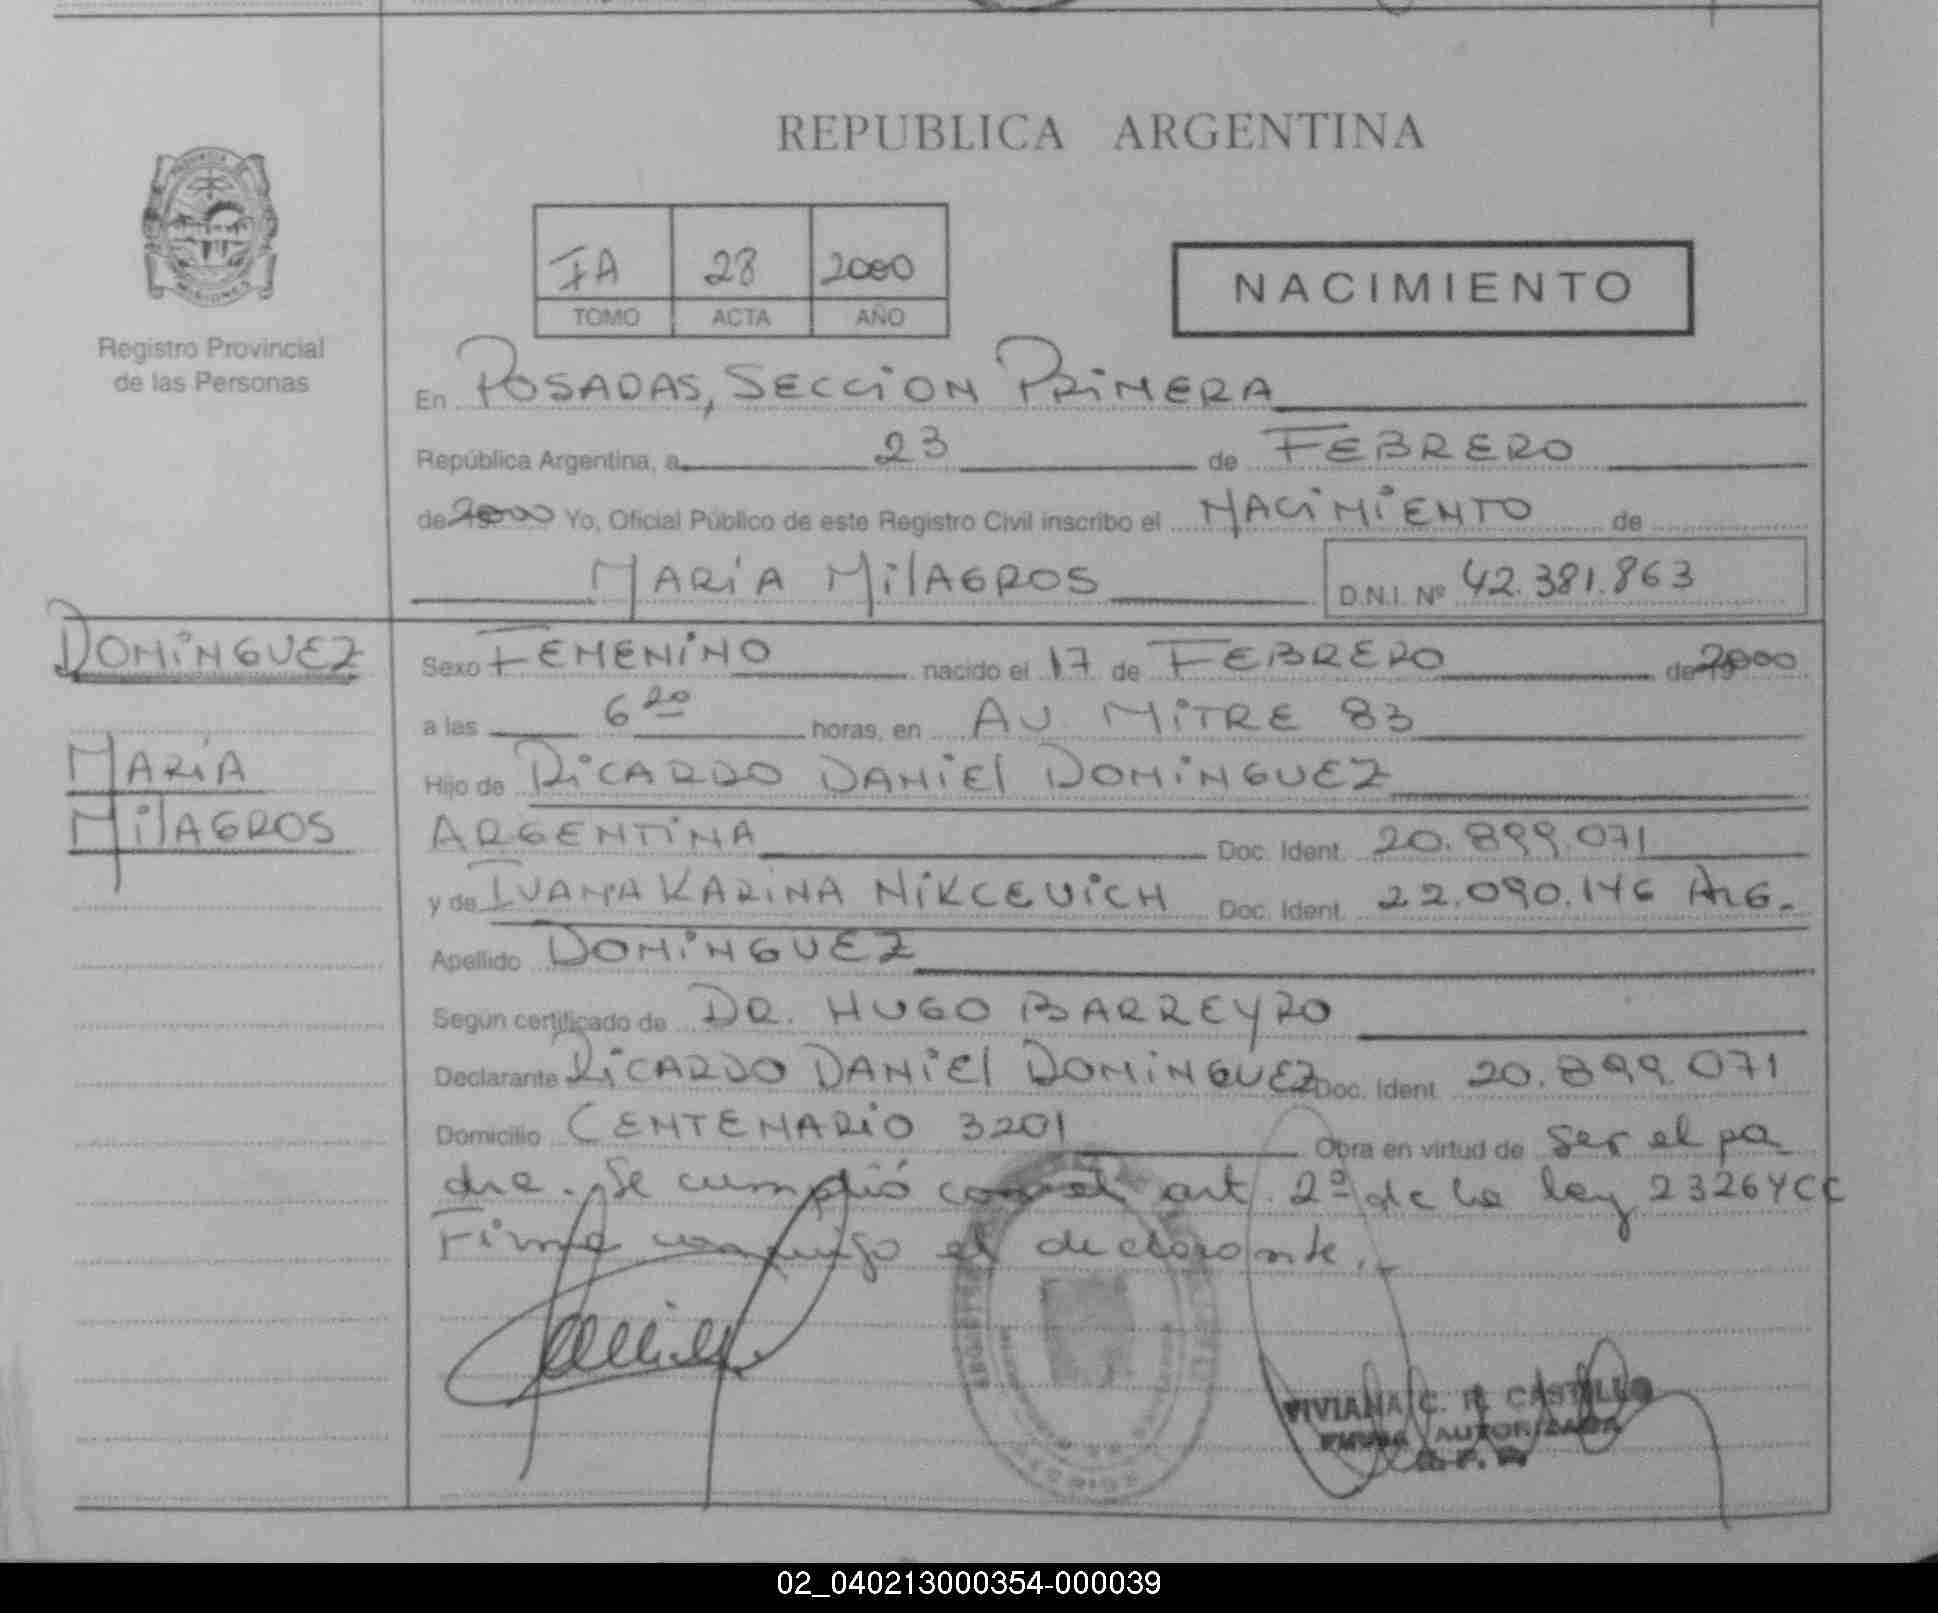 REPUBLICA ARGENTINA
MISIONES
Registro Provincial
de las Personas
IA 28 2000
TOMO ACTA AÑO
NACIMIENTO
En POSADAS, SECCION PRIMERA
República Argentina, a 23 de FEBRERO
de 2000 Yo, Oficial Público de este Registro Civil inscribo el NACIMIENTO de
MARÍA MILAGROS D.N.I. Nº 42.381.863
DOMINGUEZ
MARÍA
MILAGROS
Sexo FEMENINO nacido el 17 de FEBRERO de 2000
a las 6 20 horas, en AV. MITRE 83
Hijo de RICARDO DANIEL DOMINGUEZ
ARGENTINA Doc. Ident. 20.899.071
y de IVANA KARINA NIKCEVICH Doc. Ident. 22.090.146 ARG.
Apellido DOMINGUEZ
Segun certificado de DR. HUGO BARREYRO
Declarante RICARDO DANIEL DOMINGUEZ Doc. Ident. 20.899.071
Domicilio CENTENARIO 3201 Obra en virtud de ser el pa
dre. Se cumplió con el art. 2º de la ley 23264 CC
Firma conmigo el declarante.
VIVIANA C. R. CASTILLO
FIRMA AUTORIZADA
02_040213000354-000039